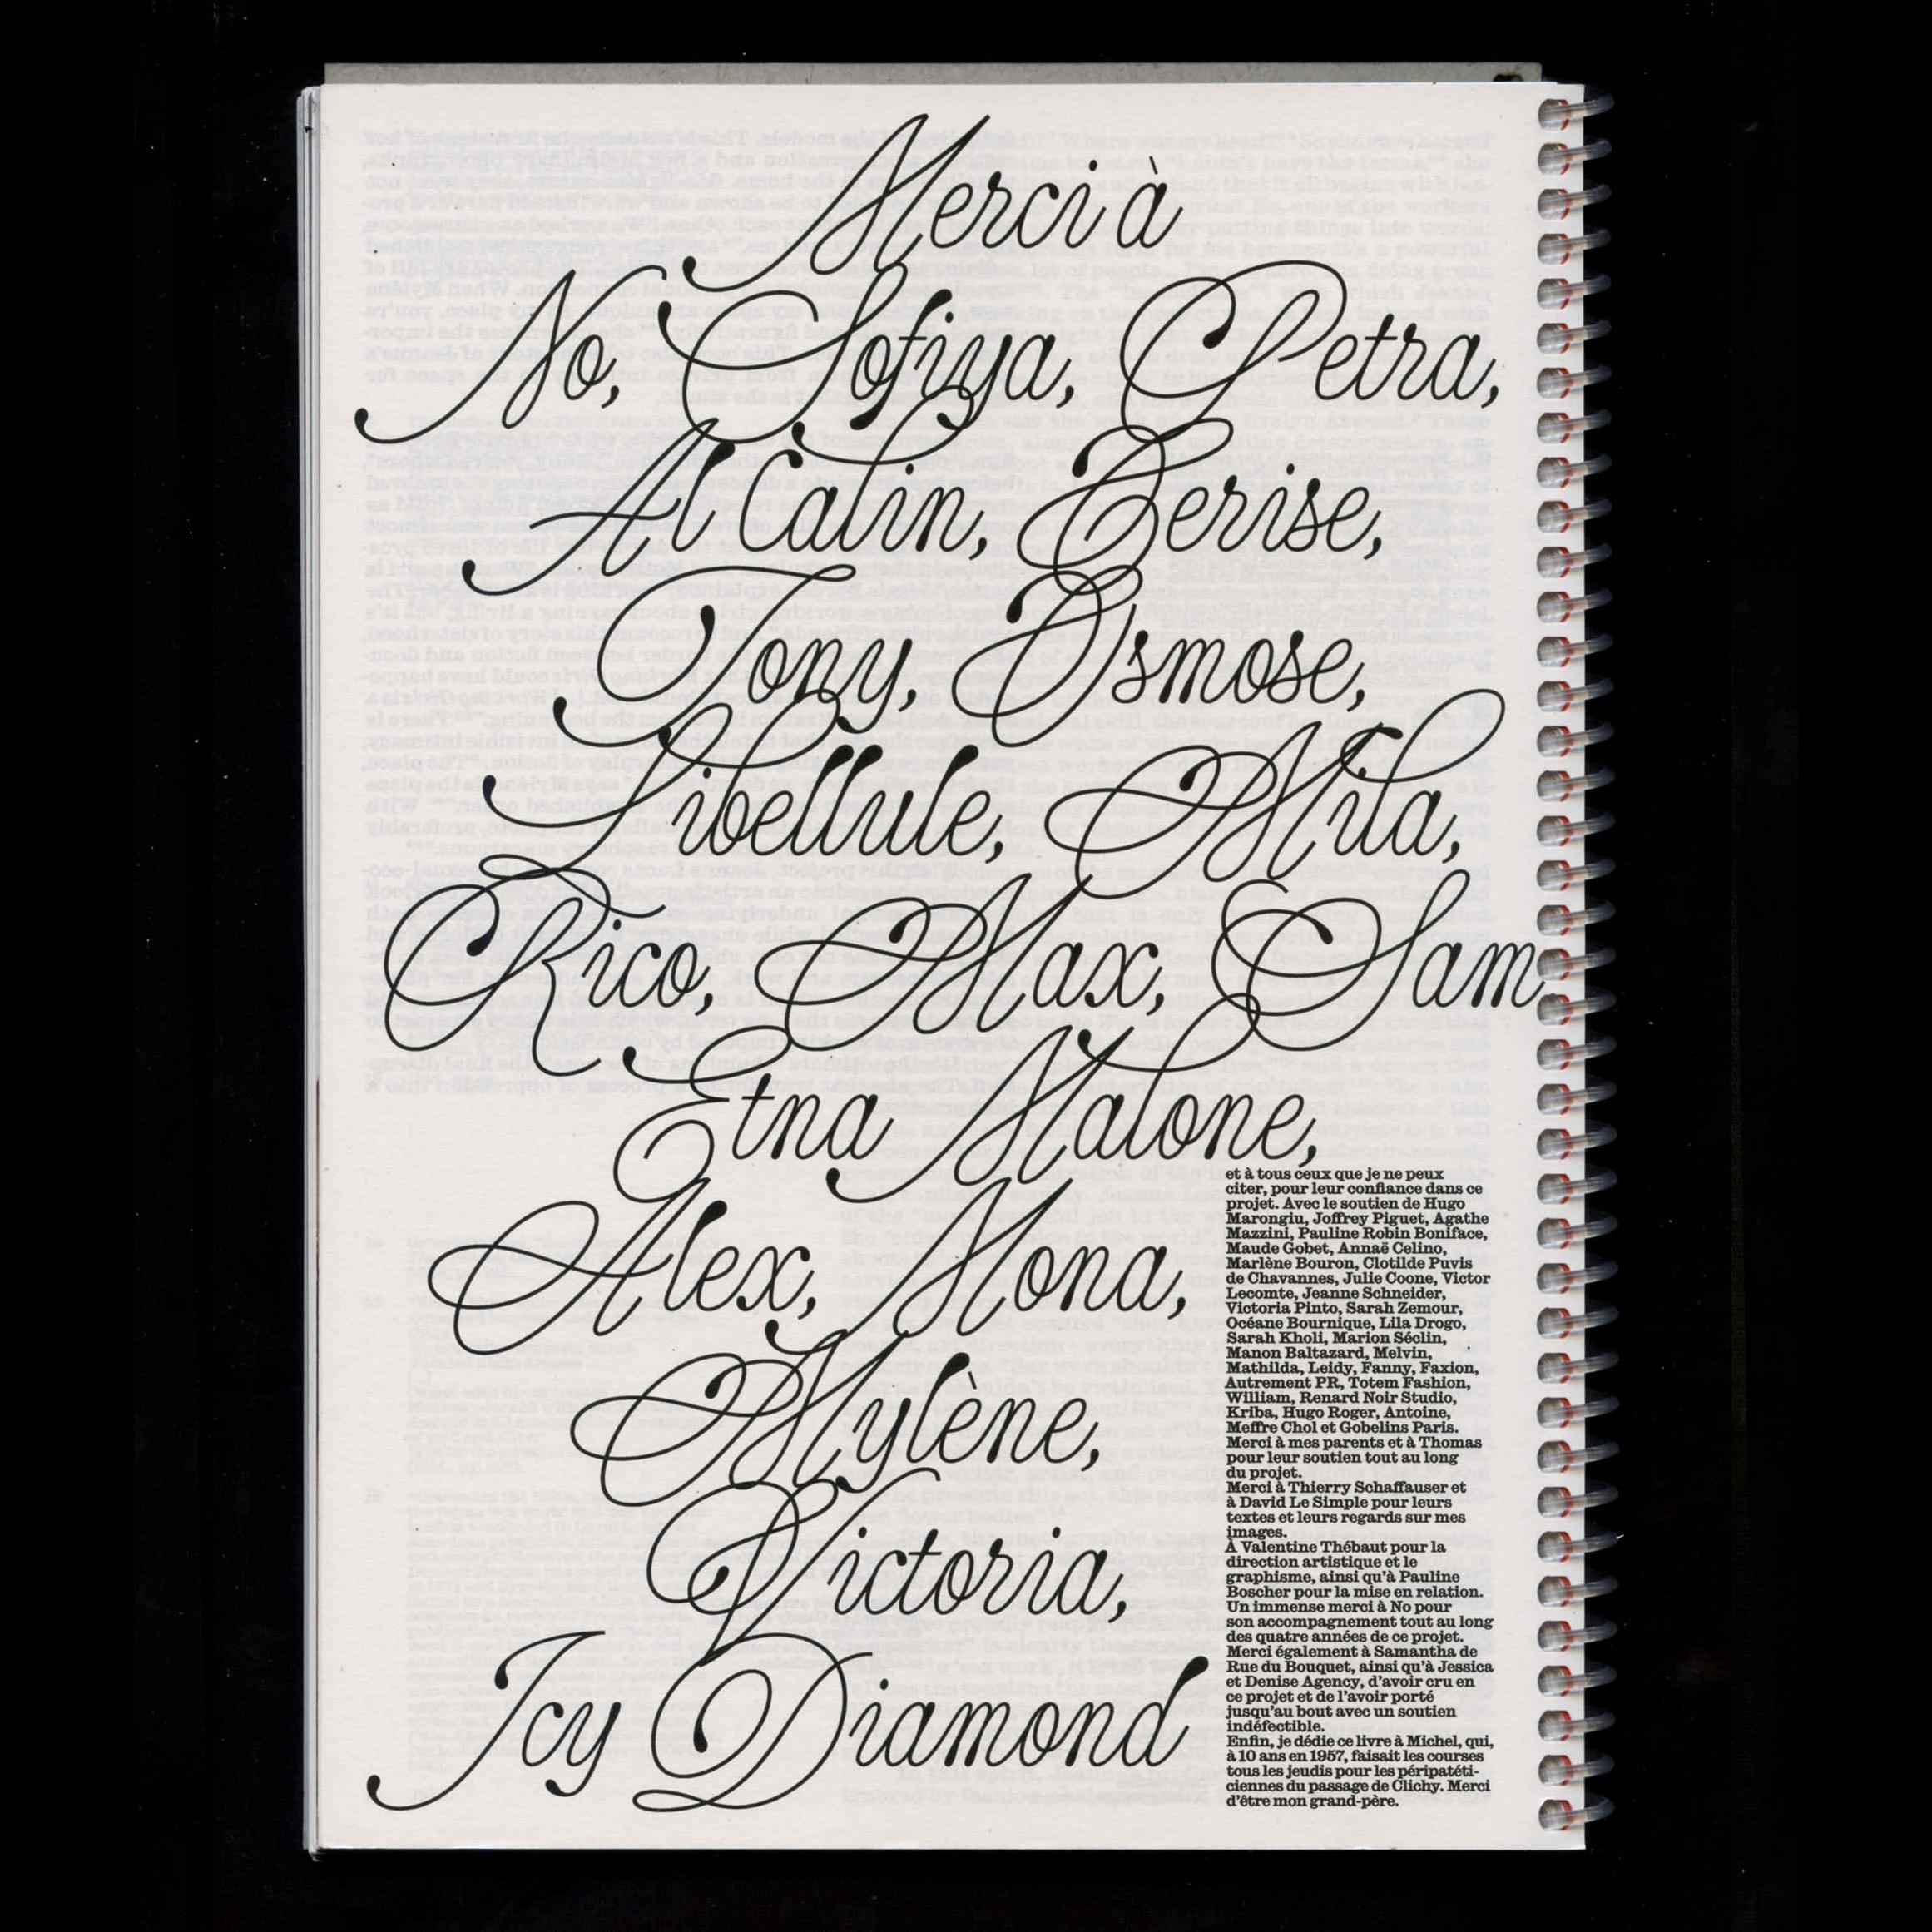 Merci à
No, Sofiya, Petra,
Al Catin, Berise,
Tony, Osmose,
Libellule, Mita,
Rico, Max, Sam,
Etna Malone,
Alex, Mona,
Mylène,
Victoria,
Icy Diamond
et à tous ceux que je ne peux
citer, pour leur confiance dans ce
projet. Avec le soutien de Hugo
Marongiu, Joffrey Piguet, Agathe
Mazzini, Pauline Robin Boniface,
Maude Gobet, Annaë Celino,
Marlène Bouron, Clotilde Puvis
de Chavannes, Julie Coone, Victor
Lecomte, Jeanne Schneider,
Victoria Pinto, Sarah Zemour,
Océane Bournique, Lila Drogo,
Sarah Kholi, Marion Séclin,
Manon Baltazard, Melvin,
Mathilda, Leidy, Fanny, Faxion,
Autrement PR, Totem Fashion,
William, Renard Noir Studio,
Kriba, Hugo Roger, Antoine,
Meffre Chol et Gobelins Paris.
Merci à mes parents et à Thomas
pour leur soutien tout au long
du projet.
Merci à Thierry Schaffauser et
à David Le Simple pour leurs
textes et leurs regards sur mes
images.
À Valentine Thébaut pour la
direction artistique et le
graphisme, ainsi qu'à Pauline
Boscher pour la mise en relation.
Un immense merci à No pour
son accompagnement tout au long
des quatre années de ce projet.
Merci également à Samantha de
Rue du Bouquet, ainsi qu'à Jessica
et Denise Agency, d'avoir cru en
ce projet et de l'avoir porté
jusqu'au bout avec un soutien
indéfectible.
Enfin, je dédie ce livre à Michel, qui,
à 10 ans en 1957, faisait les courses
tous les jeudis pour les péripatéti-
ciennes du passage de Clichy. Merci
d'être mon grand-père.